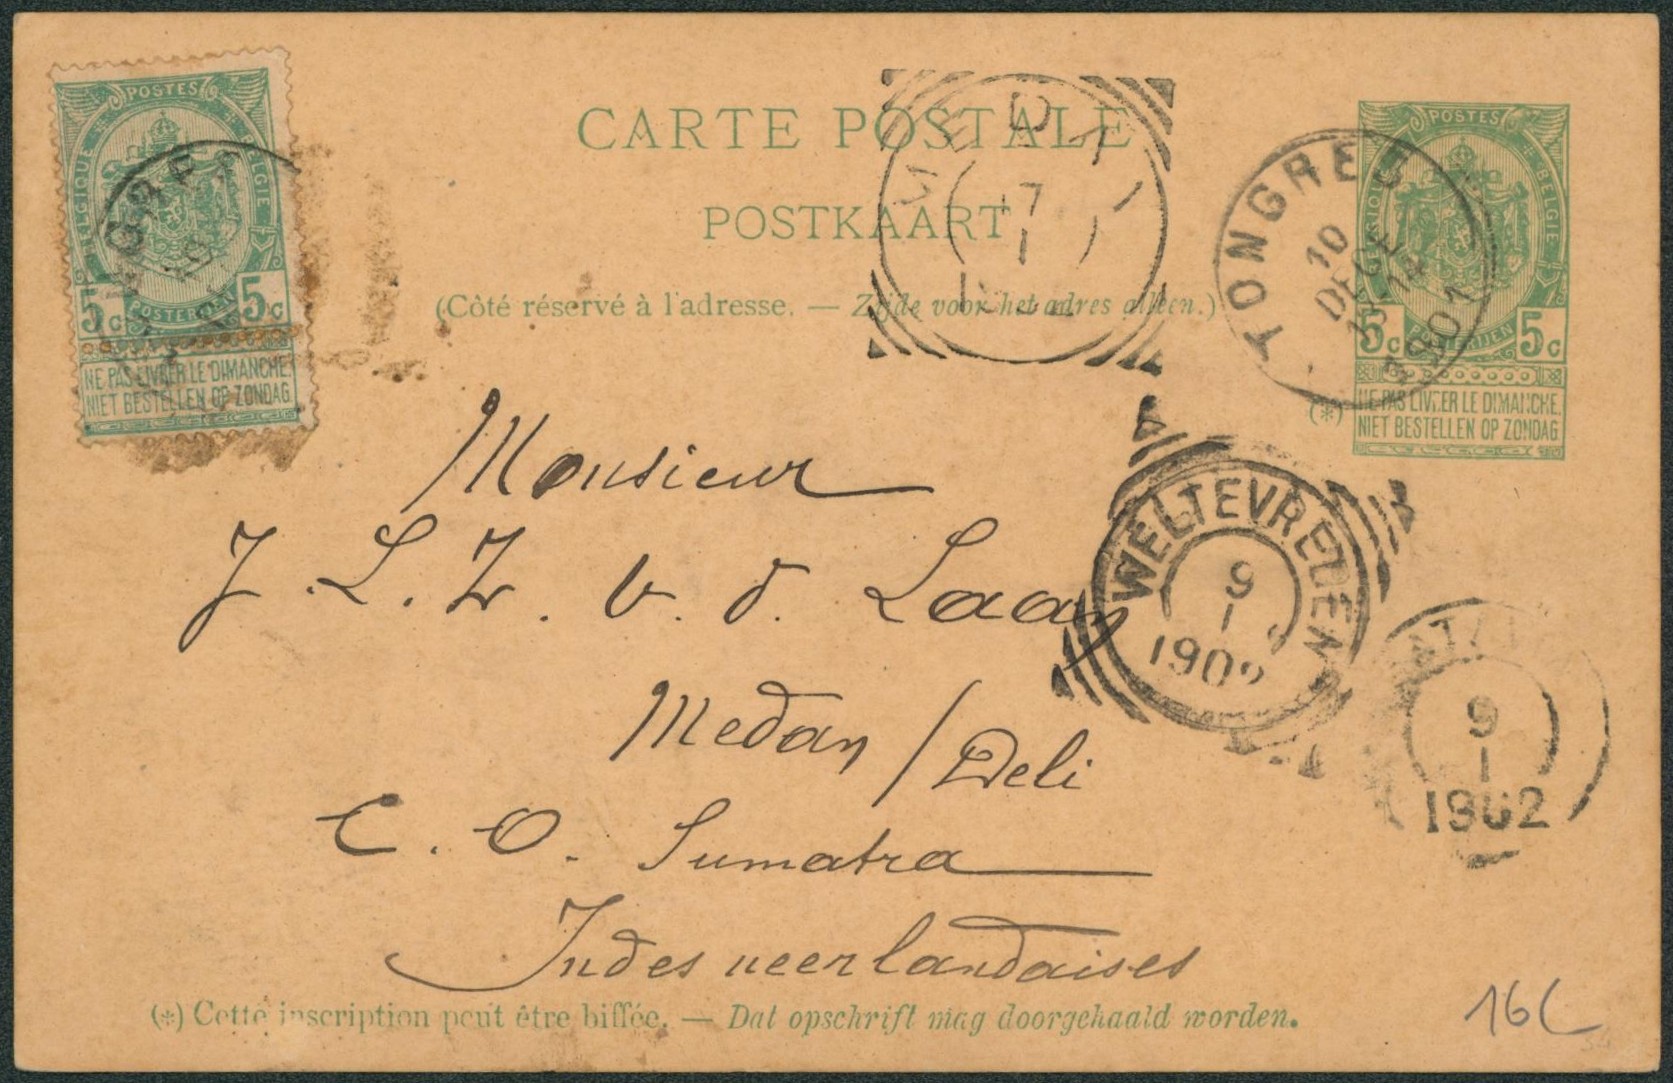 POSTES
BELGIQUE
BELGIE
5c POSTERIJEN 5c
NE PAS LIVRER LE DIMANCHE.
NIET BESTELLEN OP ZONDAG
CARTE POSTALE
POSTKAART
(Côté réservé à l'adresse. — Zijde voor het adres alleen.)
MEDAN
17
1
TONGRES
10
DEC
1901
POSTES
BELGIE
5c 5c
(*) NE PAS LIVRER LE DIMANCHE.
NIET BESTELLEN OP ZONDAG
Monsieur
J. L. Z. v. d. Laan
Medan / Deli
C. O. Sumatra
Indes neerlandaises
WELTEVREDEN
9
1
1902
9
1
1902
(*) Cette inscription peut être biffée. — Dat opschrift mag doorgehaald worden.